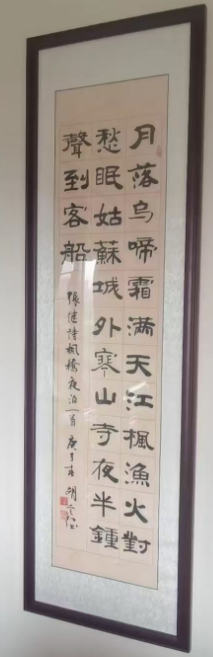 月落乌啼霜满天江楓漁火對
愁眠姑蘇城外寒山寺夜半鍾
聲到客船
張继诗楓橋夜泊一首